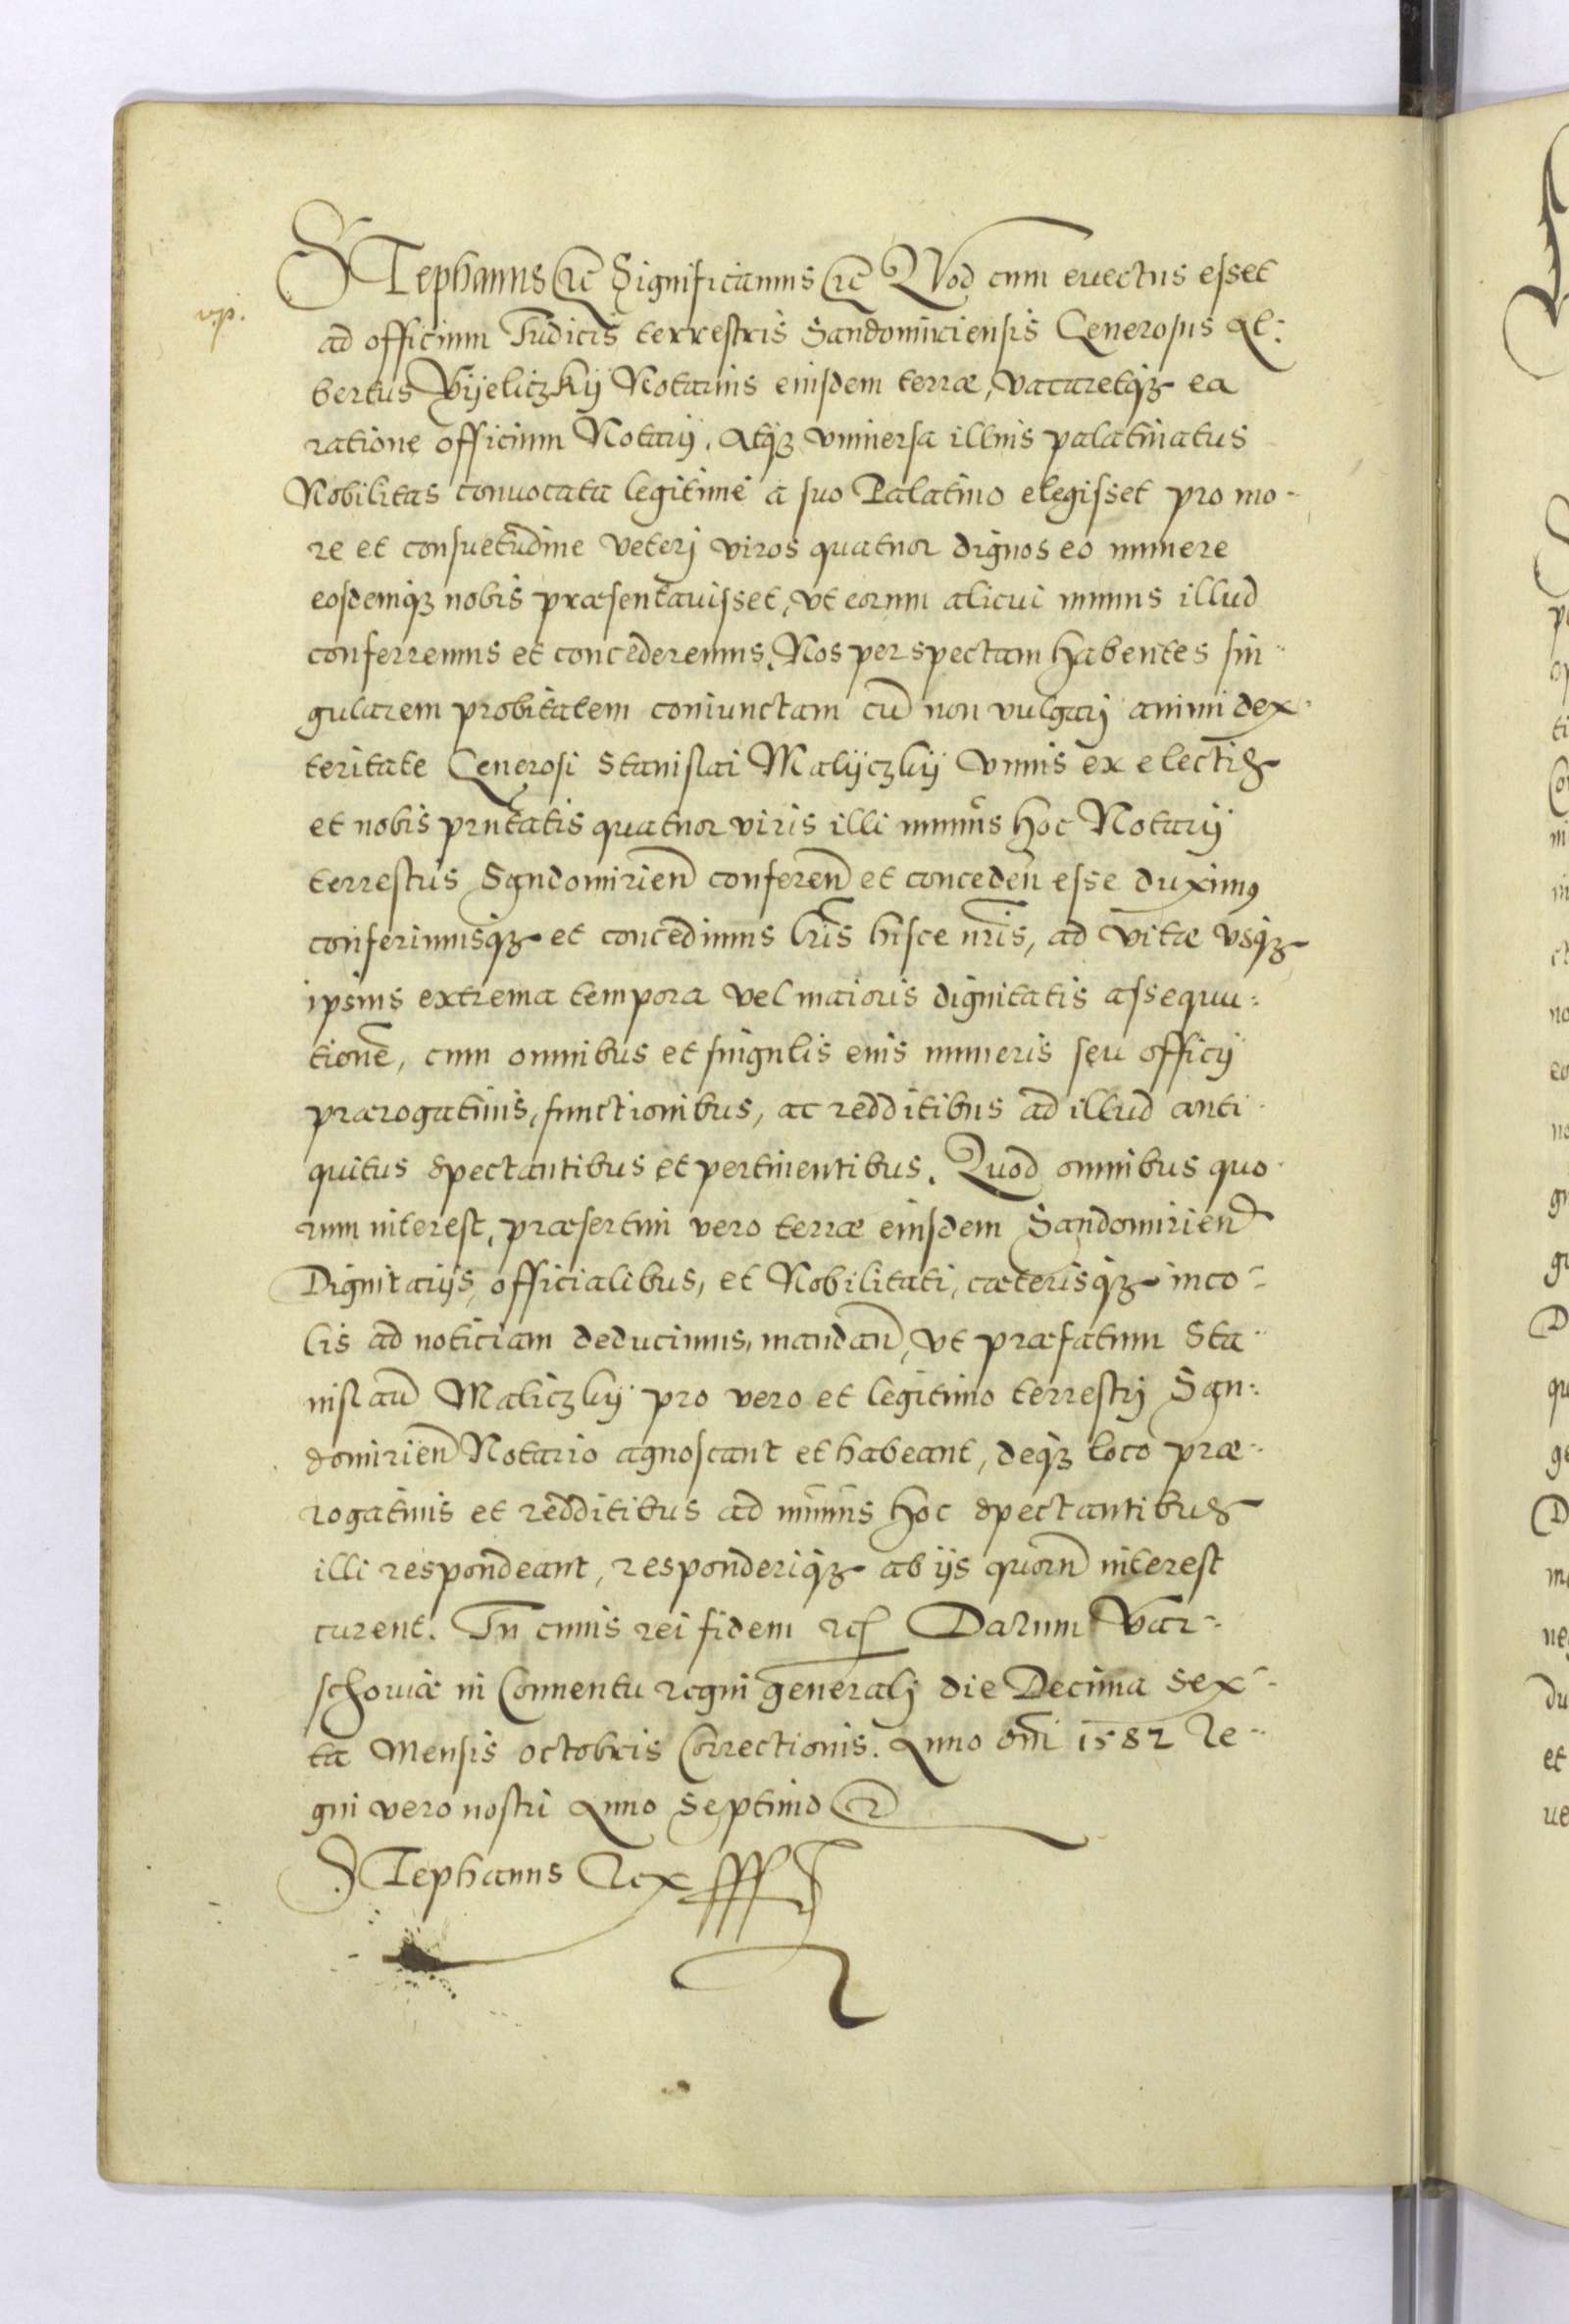 STephanus etc Significamus etc QVod cum euectus esset
v.p.
ad officium Iudicis terrestris Sandomiriensis Generosus Al:
bertus Vijeliczkij Notarius eiusdem terræ, vacaretq3 ea
ratione officium Notarij. Atq3 vniuersa illius palatinatus
Nobilitas conuocata legitimè à suo Palatino elegisset pro mo-
re et consuetudine veterj viros quatuor dignos eo munere
eosdemq3 nobis præsentauisset, vt eorum alicui munus illud
conferremus et concederemus. Nos perspectam habentes sin-
gularem probitatem coniunctam cū non vulgarj animi dex-
teritate Generosi Stanislai Malijczkij vnius ex electis
et nobis prntatis quatuor viris illi munus hoc Notarij
terrestris Sandomirien̄ conferen̄ et conceden̄ esse duximꝰ
conferimusq3 et concedimus lr̄is hisce nr̄is, ad vitæ vsq3
ipsius extrema tempora vel maioris dignitatis assequu:
tionē, cum omnibus et singulis eius muneris seu officij
prærogatiuis, functionibus, ac redditibus ad illud anti-
quitus spectantibus et pertinentibus. Quod omnibus quo-
rum interest, præsertim vero terræ eiusdem Sandomirien̄
Dignitarijs, officialibus, et Nobilitati, cæterisq3 inco-
lis ad noticiam deducimus, mandan̄, vt præfatum Sta-
nislaū Maliczkij pro vero et legitimo terrestrj San-
domirien̄ Notario agnoscant et habeant, deq3 loco præ-
rogatiuis et redditibus ad munus hoc spectantibus
illi respondeant, responderiq3 ab ijs quorū interest
curent. In cuius rei fidem etc Datum Var-
schouiæ in Conuentu regni generalj die Decima sex-
ta Mensis octobris Correctionis. Anno dn̄i 1582 Re-
gni vero nostri Anno Septimo
STephanus Rex